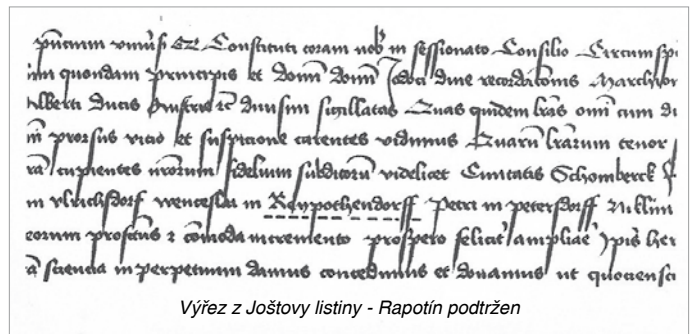 pñcium vniũsis Constituti coram nob̃ in sessionato Consilio Circumspi
quondam principis et dom̃ dom̃ Jodoci diue recordac̃onis Marchion
Alberti Ducis Austrie diuisim sigillatas Quas quidem lr̃as om̃i cum di
prorsus vicio et suspicione carentes vidimus Quarũ lr̃arum tenor
cupientes nr̃orum fidelium subditorũ videlicet Ciuitatis Schomberck
in vlrichsdorf wenceslai in Reypothendorff Petri in petersdorff Niklini
eorum profectus cõmoda incremento prospero felicit̃ ampliare ip̃is her
sciencia in perpetuum damus concedimus et donamus ut quociensc
Výřez z Joštovy listiny - Rapotín podtržen